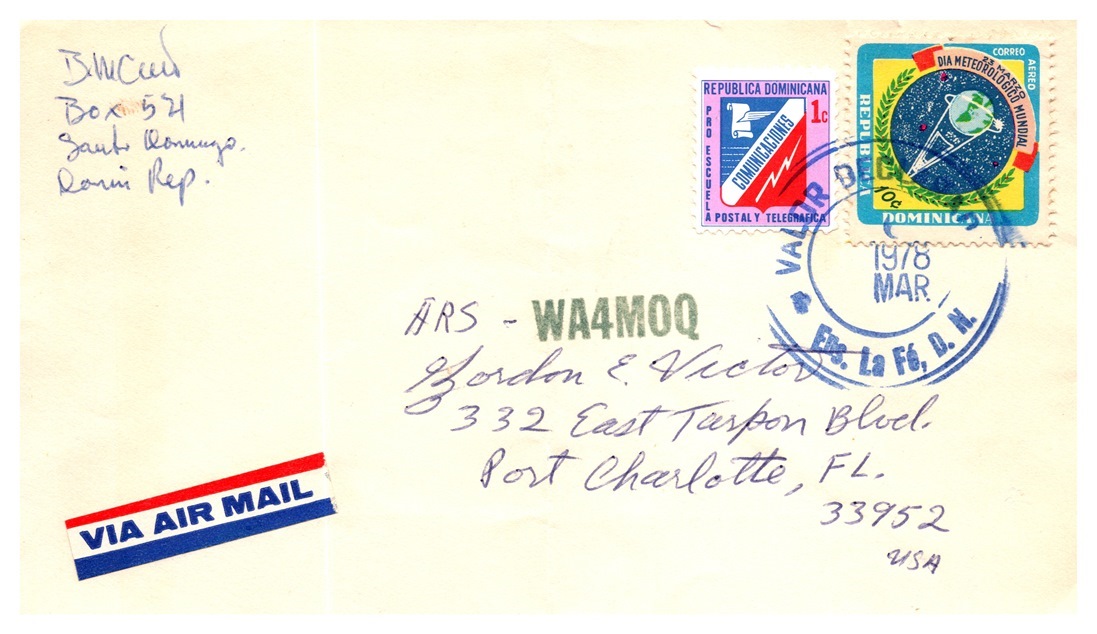 Box 521
Santo Domingo.
Dom Rep.
REPUBLICA DOMINICANA
1c
PRO ESCUELA POSTAL Y TELEGRAFICA
COMUNICACIONES
CORREO AEREO
23 MARZO
DIA METEOROLOGICO MUNDIAL
REPUBLICA
DOMINICANA
10¢
VALOR
1978
MAR
La Fé, D. N.
ARS - WA4MOQ
Gordon E. Victor
332 East Tarpon Blvd.
Port Charlotte, FL.
33952
USA
VIA AIR MAIL